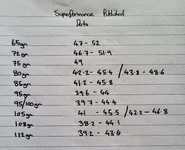 Superformance Published
Data
65gr 47 - 52
72gr 46.7 - 51.9
75gr 49
80gr 42.2 - 45.4 / 43.8 - 48.6
85gr 41.2 - 45.8
95gr 39.6 - 44
95/100gr 39.7 - 44.4
105gr 41 - 45.5 / 42.2 - 46.8
108gr 38.2 - 44.1
112gr 39.2 - 43.6